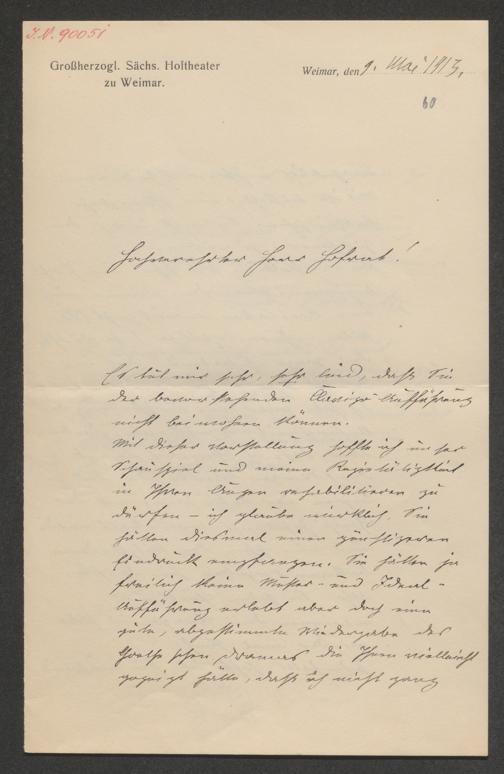 J.N. 90051
Großherzogl. Sächs. Hoftheater
zu Weimar.
Weimar, den 9. Mai 1913.
60
Hochverehrter Herr Hofrat!
Es tut mir sehr, sehr leid, daß Sie
der bevorstehenden Aufführung
nicht beiwohnen können.
Mit dieser Vorstellung hoffte ich unser
Schauspiel und meine Regietätigkeit
in Ihren Augen rehabilitieren zu
dürfen – ich glaube wirklich, Sie
hätten diesmal einen günstigeren
Eindruck empfangen. Sie hätten ja
freilich keine Muster- und Ideal-
Aufführung erlebt aber doch eine
gute, abgestimmte Wiedergabe des
Goethe'schen Dramas die Ihnen vielleicht
gezeigt hätte, daß ich nicht ganz